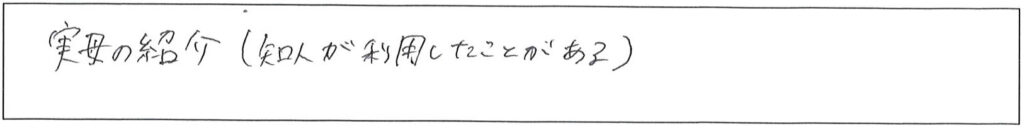 実母の紹介(知人が利用したことがある)